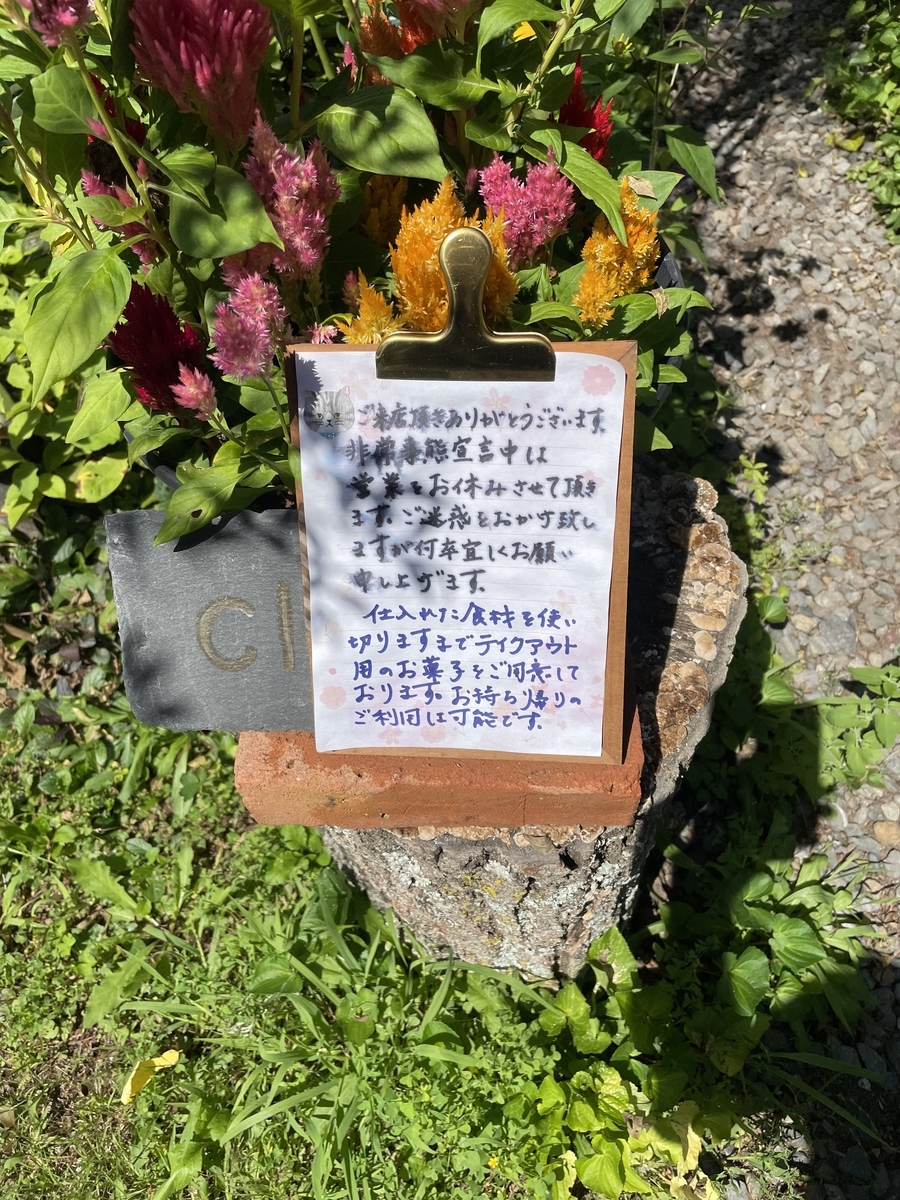 ご来店頂きありがとうございます。
非常事態宣言中は
営業をお休みさせて頂き
ます。ご迷惑をおかけ致し
ますが何卒宜しくお願い
申し上げます。
仕入れた食材を使い
切りますまでテイクアウト
用のお菓子をご用意して
おります。お持ち帰りの
ご利用は可能です。
cl